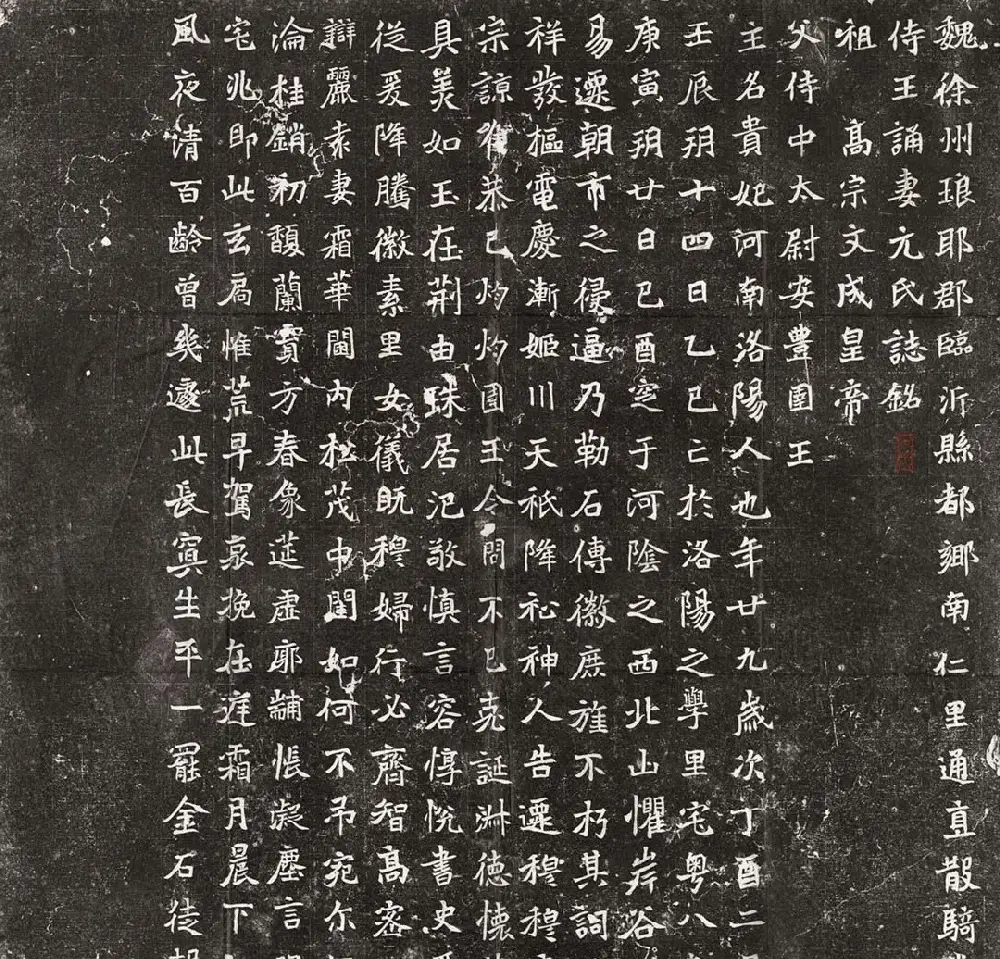 魏徐州琅耶郡臨沂縣都鄉南仁里通直散騎
侍王誦妻元氏誌銘
祖高宗文成皇帝
父侍中太尉安豐圉王
主名貴妃河南洛陽人也年廿九歲次丁酉二
壬辰玥十四日乙巳亡於洛陽之學里宅粵八
庚寅玥廿日己酉窆于河陰之西北山懼岸谷
易遷朝市之侵逼乃勒石傳徽庶旌不朽其詞
祥發樞電慶漸姬川天祇降祉神人告遷穆穆
宗諒唯恭己灼灼圉王令問不已克誕淋德懷
具美如玉在荊由珠居汜敬慎言容惇悅書史
從爰降騰徽素里女儀既穆婦行必齊智高密
辯麗萊妻霜華閫内松茂中閨如何不吊宛尒
淪桂銷初馥蘭實方春象莚虛廓黼悵凝塵言
宅兆即此玄扃惟荒早駕哀挽在遲霜月晨下
風夜清百齡曾幾邃此長冥生平一罷金石徒